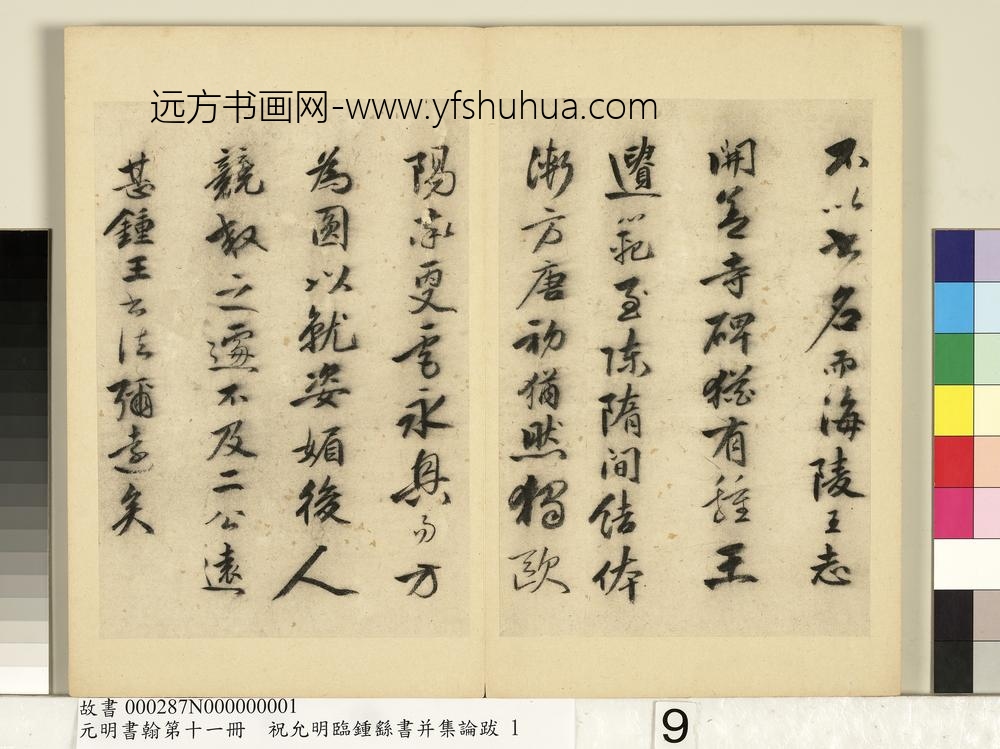 远方书画网-www.yfshuhua.com
不以書名而海陵王志
開善寺碑猶有鍾王
遺範至陳隋間結體
漸方唐初猶然獨歐
陽率更虞永興易方
為圓以就姿媚後人
競效之遽不及二公遠
甚鍾王書法彌遠矣
故書 000287N000000001
元明書翰第十一冊　祝允明臨鍾繇書并集論跋 1
9